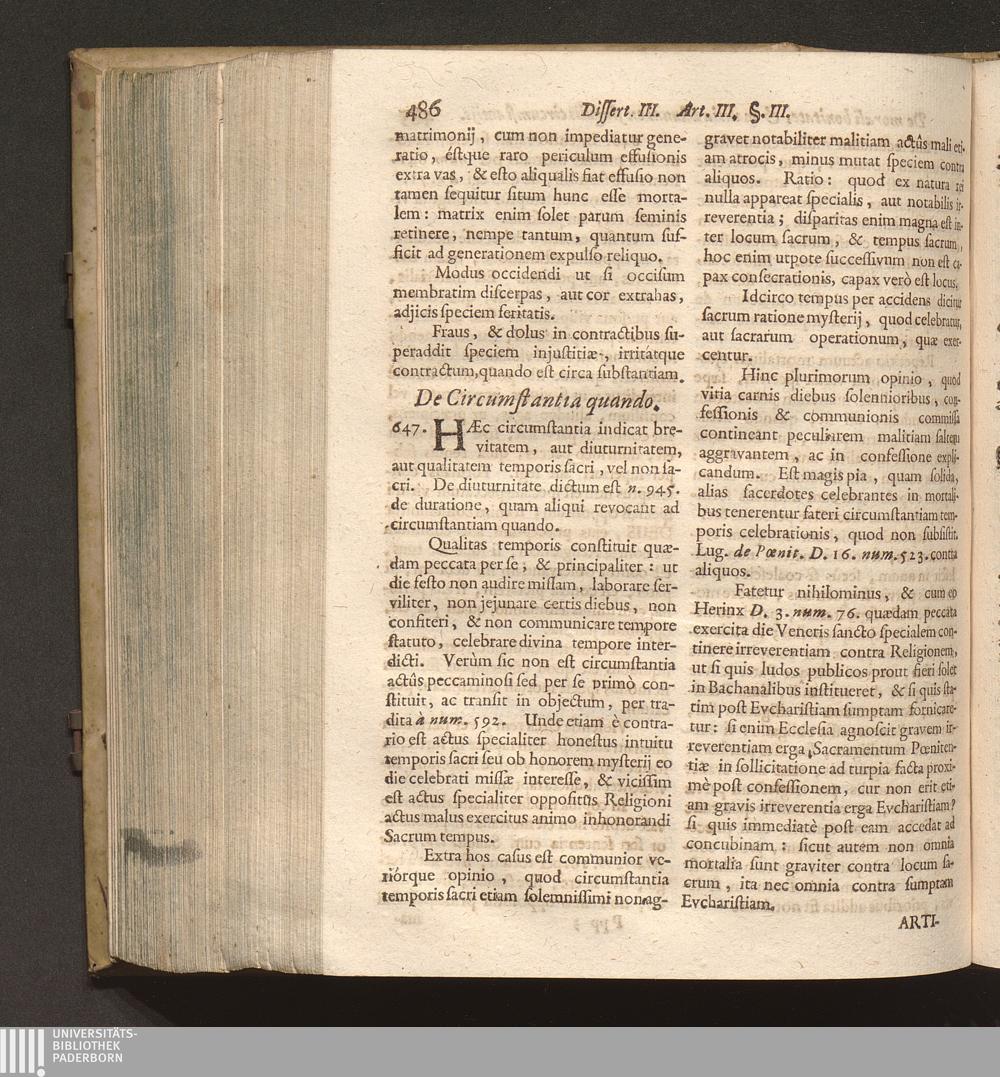 486 Dissert. III. Art. III. §. III.
matrimonij, cum non impediatur gene-
ratio, éstque raro periculum effusionis
extra vas, & esto aliqualis fiat effusio non
tamen sequitur situm hunc esse morta-
lem: matrix enim solet parum seminis
retinere, nempe tantum, quantum suf-
ficit ad generationem expulso reliquo.
Modus occidendi ut si occisum
membratim discerpas, aut cor extrahas,
adjicis speciem feritatis.
Fraus, & dolus in contractibus su-
peraddit speciem injustitiæ, irritátque
contractum, quando est circa substantiam.
De Circumstantia quando.
647. HÆc circumstantia indicat bre-
vitatem, aut diuturnitatem,
aut qualitatem temporis sacri, vel non sa-
cri. De diuturnitate dictum est n. 945.
de duratione, quam aliqui revocant ad
circumstantiam quando.
Qualitas temporis constituit quæ-
dam peccata per se, & principaliter: ut
die festo non audire missam, laborare ser-
viliter, non jejunare certis diebus, non
confiteri, & non communicare tempore
statuto, celebrare divina tempore inter-
dicti. Verùm sic non est circumstantia
actûs peccaminosi sed per se primò con-
stituit, ac transit in objectum, per tra-
dita à num. 592. Unde etiam è contra-
rio est actus specialiter honestus intuitu
temporis sacri seu ob honorem mysterij eo
die celebrati missæ interesse, & vicissim
est actus specialiter oppositus Religioni
actus malus exercitus animo inhonorandi
Sacrum tempus.
Extra hos casus est communior ve-
riórque opinio, quod circumstantia
temporis sacri etiam solemnissimi non ag-
gravet notabiliter malitiam actûs mali eti-
am atrocis, minus mutat speciem contra
aliquos. Ratio: quod ex natura rei
nulla appareat specialis, aut notabilis ir-
reverentia; disparitas enim magna est in-
ter locum sacrum, & tempus sacrum,
hoc enim utpote successivum non est ca-
pax consecrationis, capax verò est locus.
Idcirco tempus per accidens dicitur
sacrum ratione mysterij, quod celebratur,
aut sacrarum operationum, quæ exer-
centur.
Hinc plurimorum opinio, quod
vitia carnis diebus solennioribus, con-
fessionis & communionis commissa
contineant peculiarem malitiam saltem
aggravantem, ac in confessione expli-
candum. Est magis pia, quam solida,
alias sacerdotes celebrantes in mortali-
bus tenerentur fateri circumstantiam tem-
poris celebrationis, quod non subsistit.
Lug. de Pœnit. D. 16. num. 523. contra
aliquos.
Fatetur nihilominus, & cum eo
Herinx D. 3. num. 76. quædam peccata
exercita die Veneris sancto specialem con-
tinere irreverentiam contra Religionem,
ut si quis ludos publicos prout fieri solet
in Bachanalibus institueret, & si quis sta-
tim post Evcharistiam sumptam fornicare-
tur: si enim Ecclesia agnoscit gravem ir-
reverentiam erga Sacramentum Pœniten-
tiæ in sollicitatione ad turpia facta proxi-
mè post confessionem, cur non erit eti-
am gravis irreverentia erga Evcharistiam?
si quis immediatè post eam accedat ad
concubinam: sicut autem non omnia
mortalia sunt graviter contra locum sa-
crum, ita nec omnia contra sumptam
Evcharistiam.
ARTI-
UNIVERSITÄTS-
BIBLIOTHEK
PADERBORN